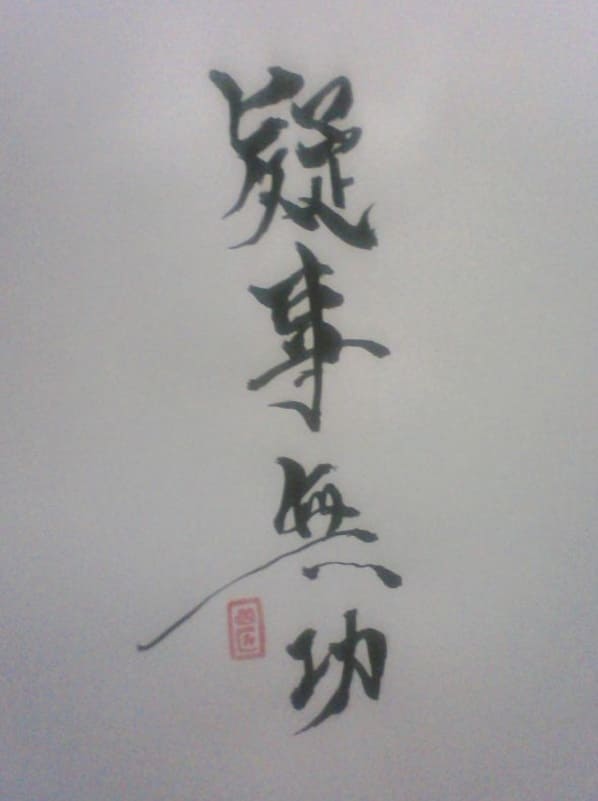 疑事無功